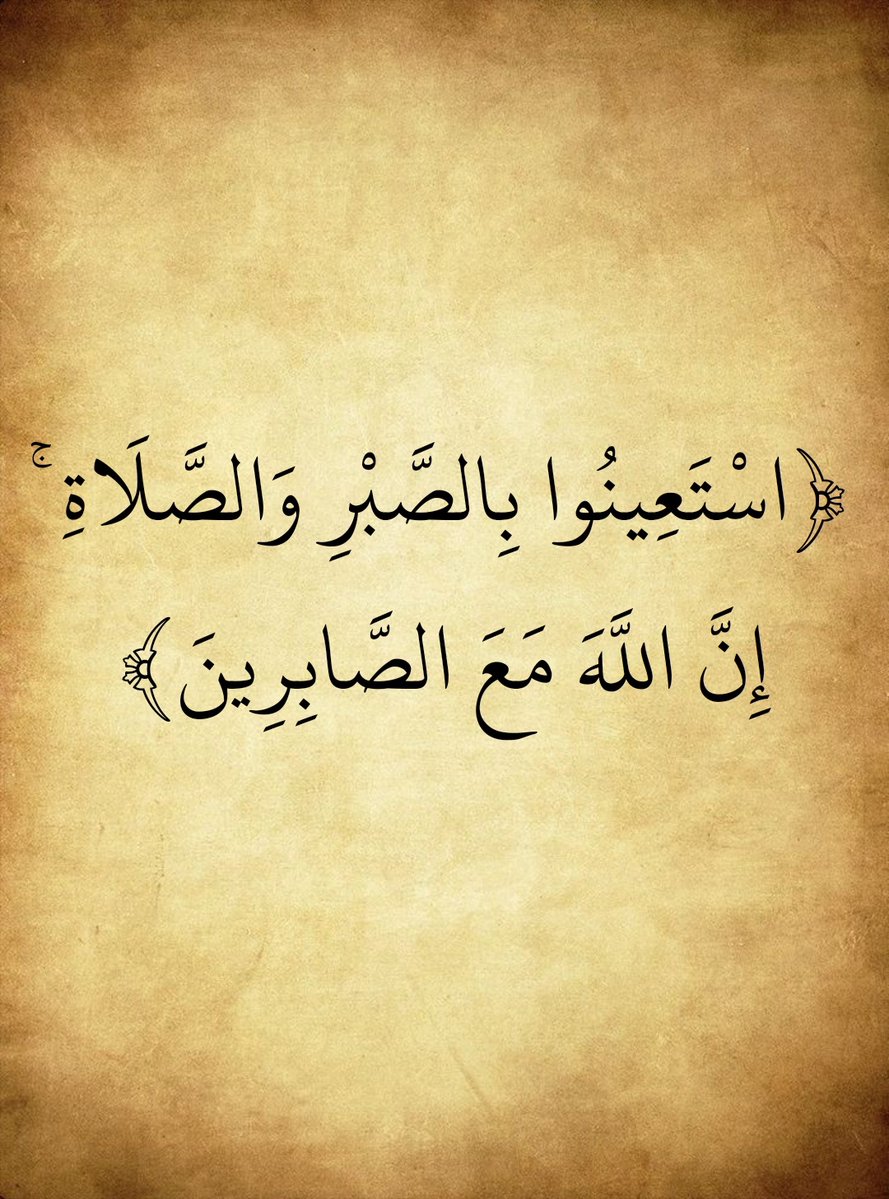 ﴿ اسْتَعِينُوا بِالصَّبْرِ وَالصَّلَاةِ ۚ
إِنَّ اللَّهَ مَعَ الصَّابِرِينَ ﴾